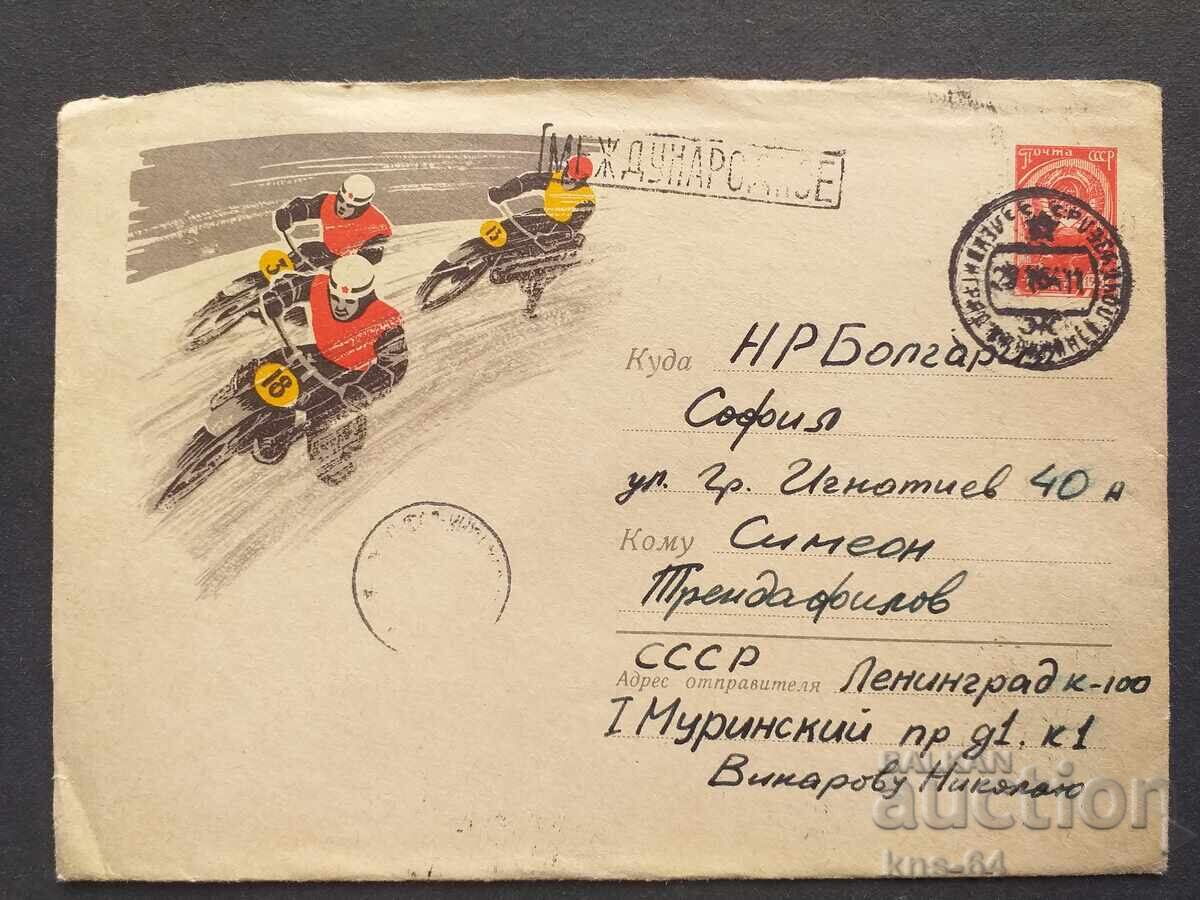 МЕЖДУНАРОДНОЕ
Почта СССР
3
13
18
Куда НР Болгария
София
ул. Гр. Игнатиев 40 а
Кому Симеон
Трендафилов
СССР
Адрес отправителя Ленинград к-100
I Муринский пр д1. к1
Викарову Николаю
BALKAN
auction
kns-64